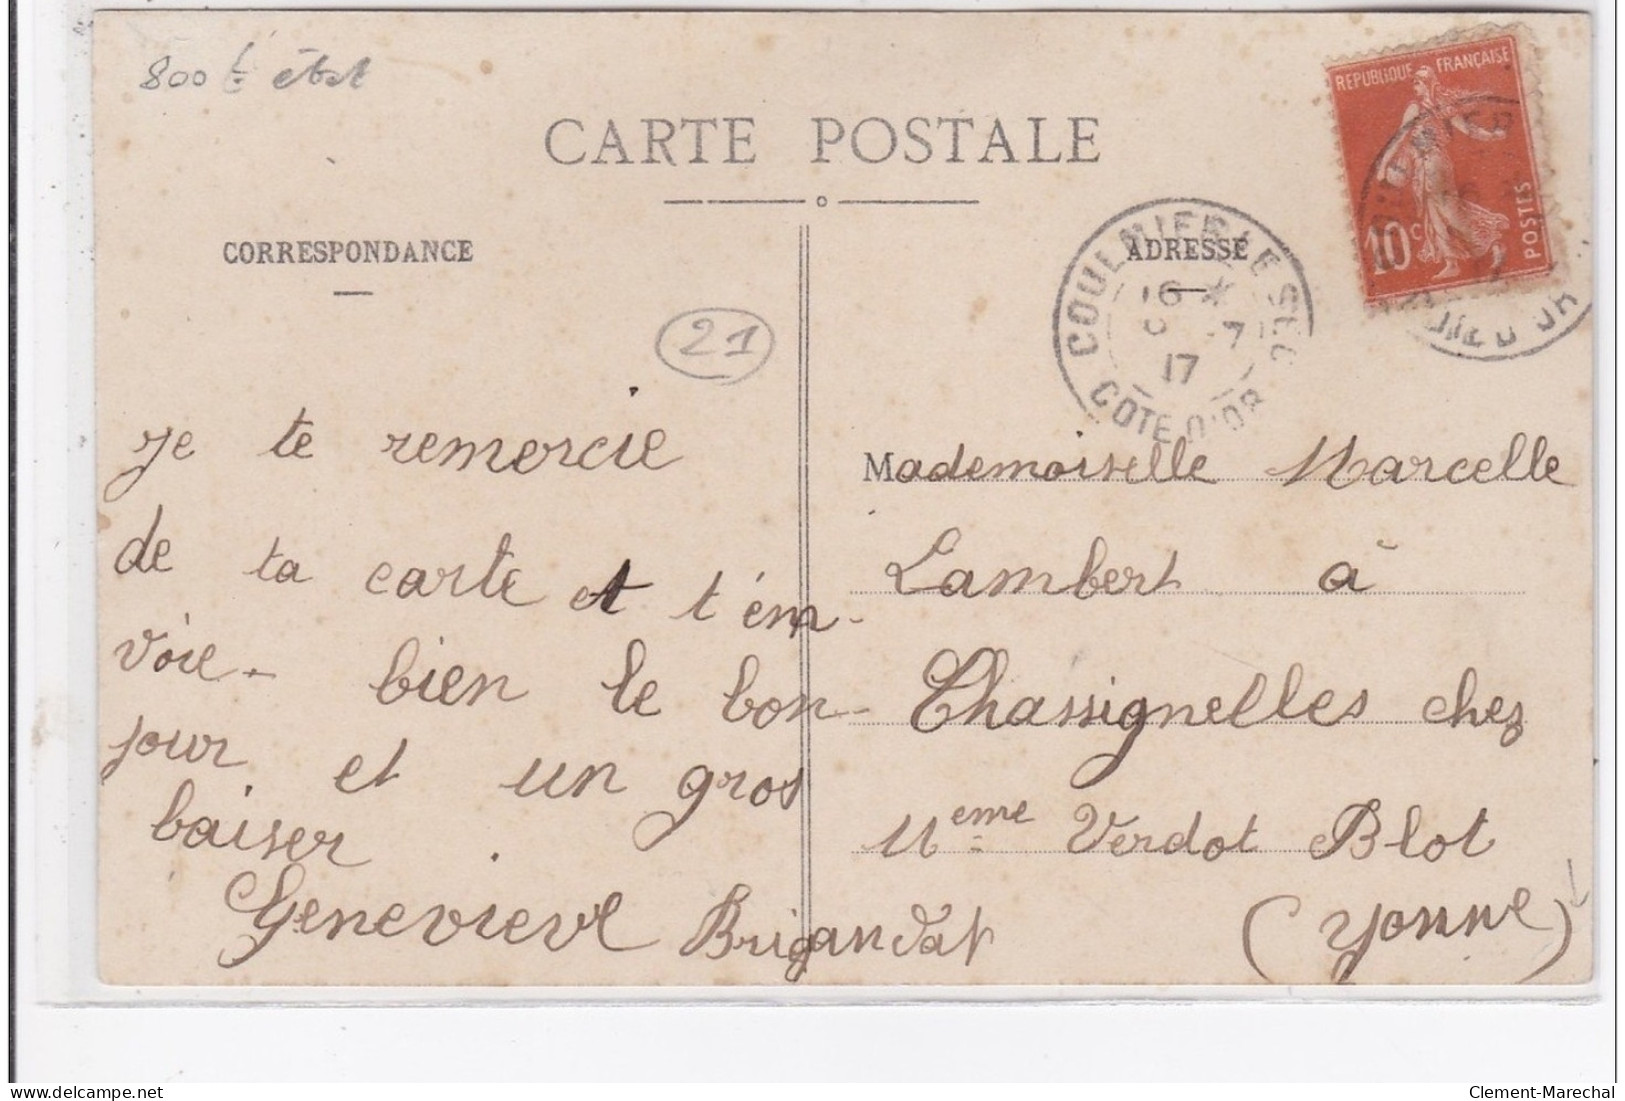 800 F état
CARTE POSTALE
CORRESPONDANCE
ADRESSE
REPUBLIQUE FRANÇAISE
10c
POSTES
COULMIER LE SEC
16 *
17
COTE D'OR
21
je te remercie
de ta carte et t'em-
voie - bien le bon-
jour et un gros
baiser.
Genevieve Brigandat
Mademoiselle Marcelle
Lambert à
Chassignelles chez
Meme Verdot Blot
(Yonne)
delcampe.net
Clement-Marechal